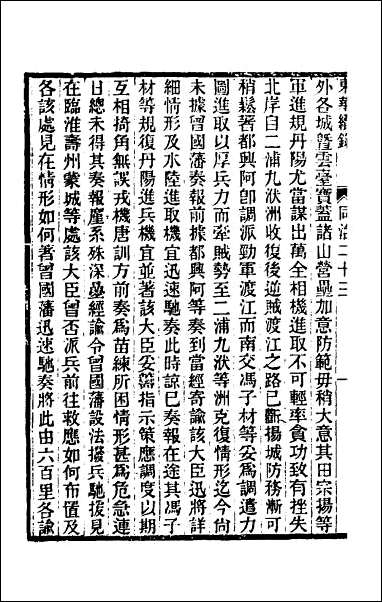 東華續錄 同治二十三
外各城暨雲臺寶蓋諸山營壘加意防範毋稍大意其田宗揚等
軍進規丹陽尤當謀出萬全相機進取不可輕率貪功致有挫失
北岸自二浦九洑洲收復後逆賊渡江之路已斷揚城防務漸可
稍鬆著都興阿卽調派勁軍渡江而南交馮子材等妥爲調遣力
圖進取以厚兵力而牽賊勢至二浦九洑等洲克復情形迄今尙
未據曾國藩奏報前據都興阿等奏到當經寄諭該大臣迅將詳
細情形及水陸進取機宜迅速馳奏此時諒已奏報在途其馮子
材等規復丹陽進兵機宜並著該大臣妥籌指示策應調度以期
互相掎角無誤戎機唐訓方前奏爲苗練所困情形甚爲危急連
日總未得其奏報廑系殊深疊經諭令曾國藩設法撥兵馳援見
在臨淮壽州蒙城等處該大臣曾否派兵前往救應如何布置及
各該處見在情形如何著曾國藩迅速馳奏將此由六百里各諭